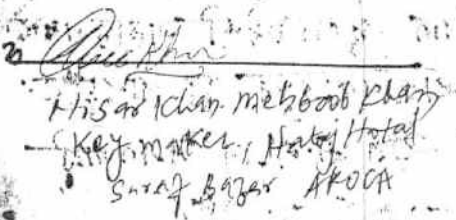 Nisar Khan Mehboob Khan
Key maker, Hotel
Saraf Bazar AKOLA